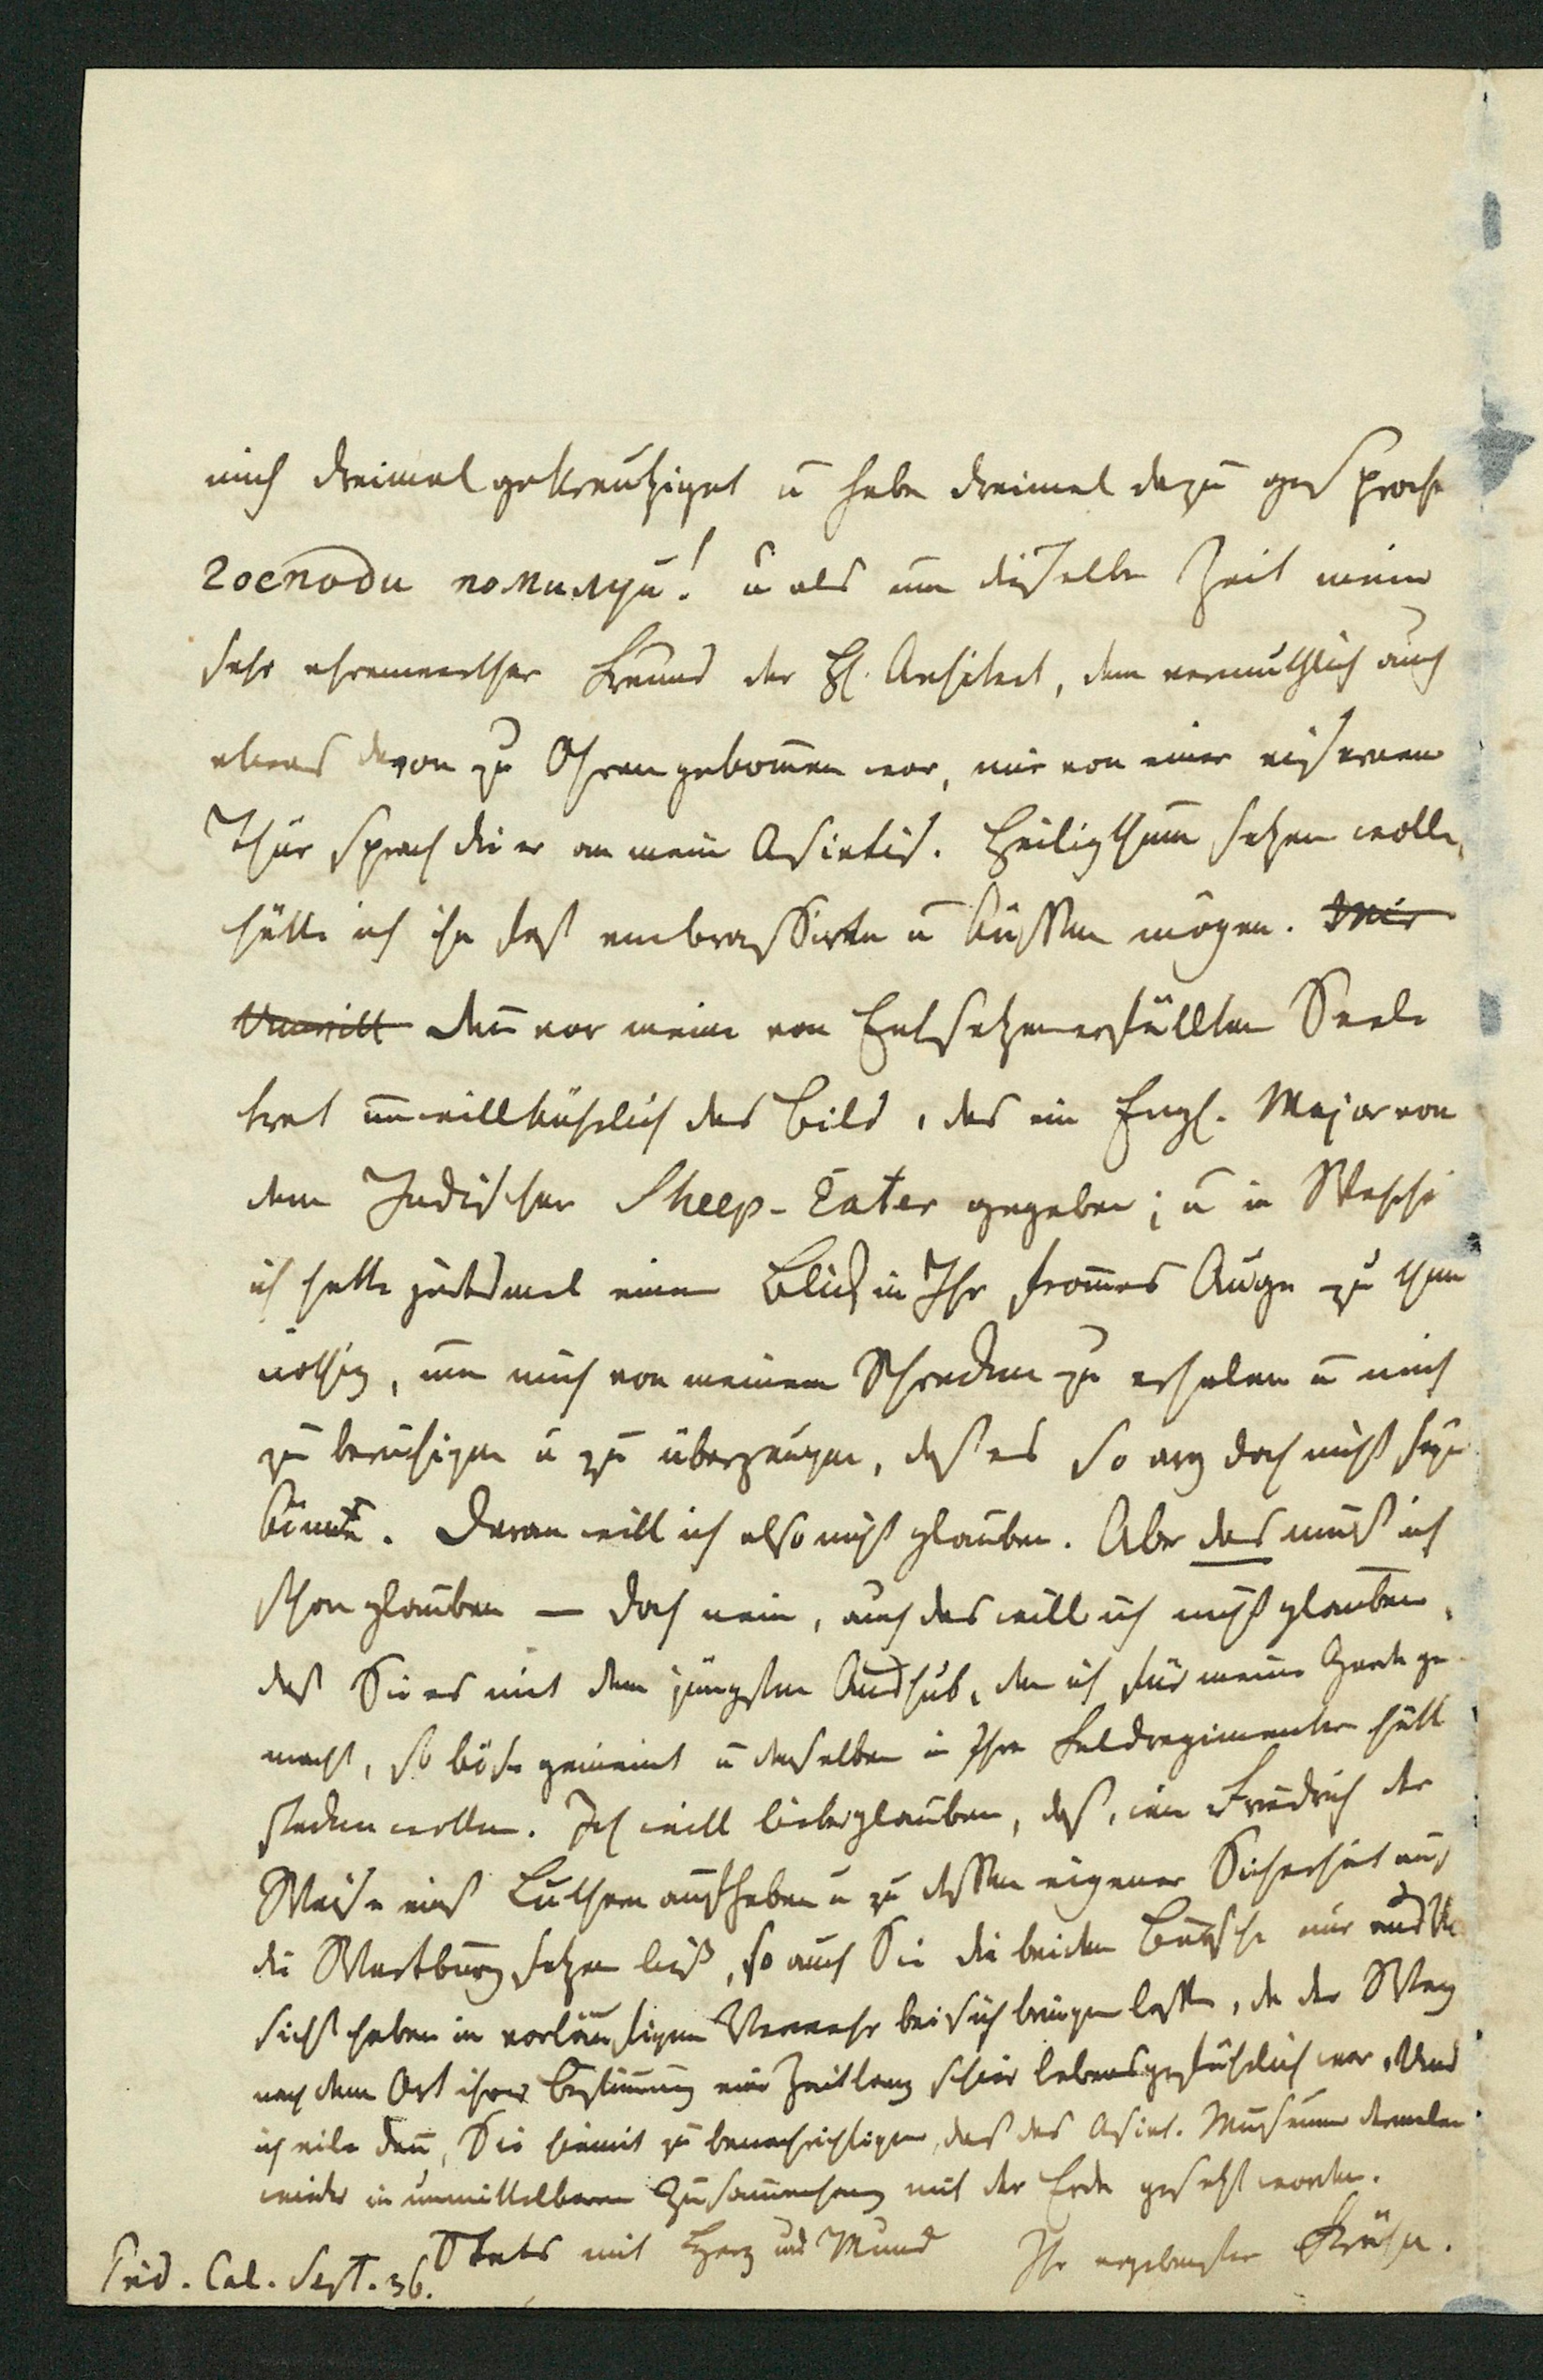 mich dreimal gekreutziget u habe dreimal dazu gesproche
господи помилуй! u als um dieselbe Zeit mein
sehr ehrenwerther Freund der H. Architect, dem vermuthlich auch
etwas davon zu Ohren gekom̄en war, mir von einer eisernen
Thür sprach die er an mein Asiatisch. Heiligthum setzen wolle,
hätte ich ihn fast embrassiren u küssen mögen. Mir
Unwill Den̄ vor meine von Entsetzen erfüllten Seele
trat unwillkührlich das Bild, das ein Engl. Major von
dem Indischen Sheep-Eater gegeben; u in
ich hatte jedesmal einen Blick in Ihr from̄es Auge zu thun
nöthig, um mich von meinem Schrecken zu erholen u mich
zu beruhigen u zu überzeugen, daß es so arg doch nicht seyn
könnte. Daran will ich also nicht glauben. Aber das muß ich
schon glauben — doch nein, auch das will ich nicht glauben,
daß Sie es mit dem jüngsten Aushub, den ich für meine Garde ge-
macht, so böse gemeint u denselben in Ihre Feldregimenter hätte
stecken wollen. Ich will lieber glauben, daß, wie Friedrich der
Weise einst Luthern aufheben u zu dessen eigener Sicherheit auf
die Wartburg setzen ließ, so auch Sie die beiden Bursche nur aus Vor
sicht haben in vorläufigen Verwahr bei sich bringen lassen, da der Weg
nach dem Ort ihrer Bestim̄ung eine Zeitlang schier lebensgefährlich war. Und
ich eile den̄, Sie hiemit zu benachrichtigen, daß das Asiat. Museum dermalen
wieder in unmittelbaren Zusam̄enhang mit der Erde gesetzt worden.
Stets mit Herz und Mund Ihr ergebenster Frähn.
Prid. Cal. Sept. 36.